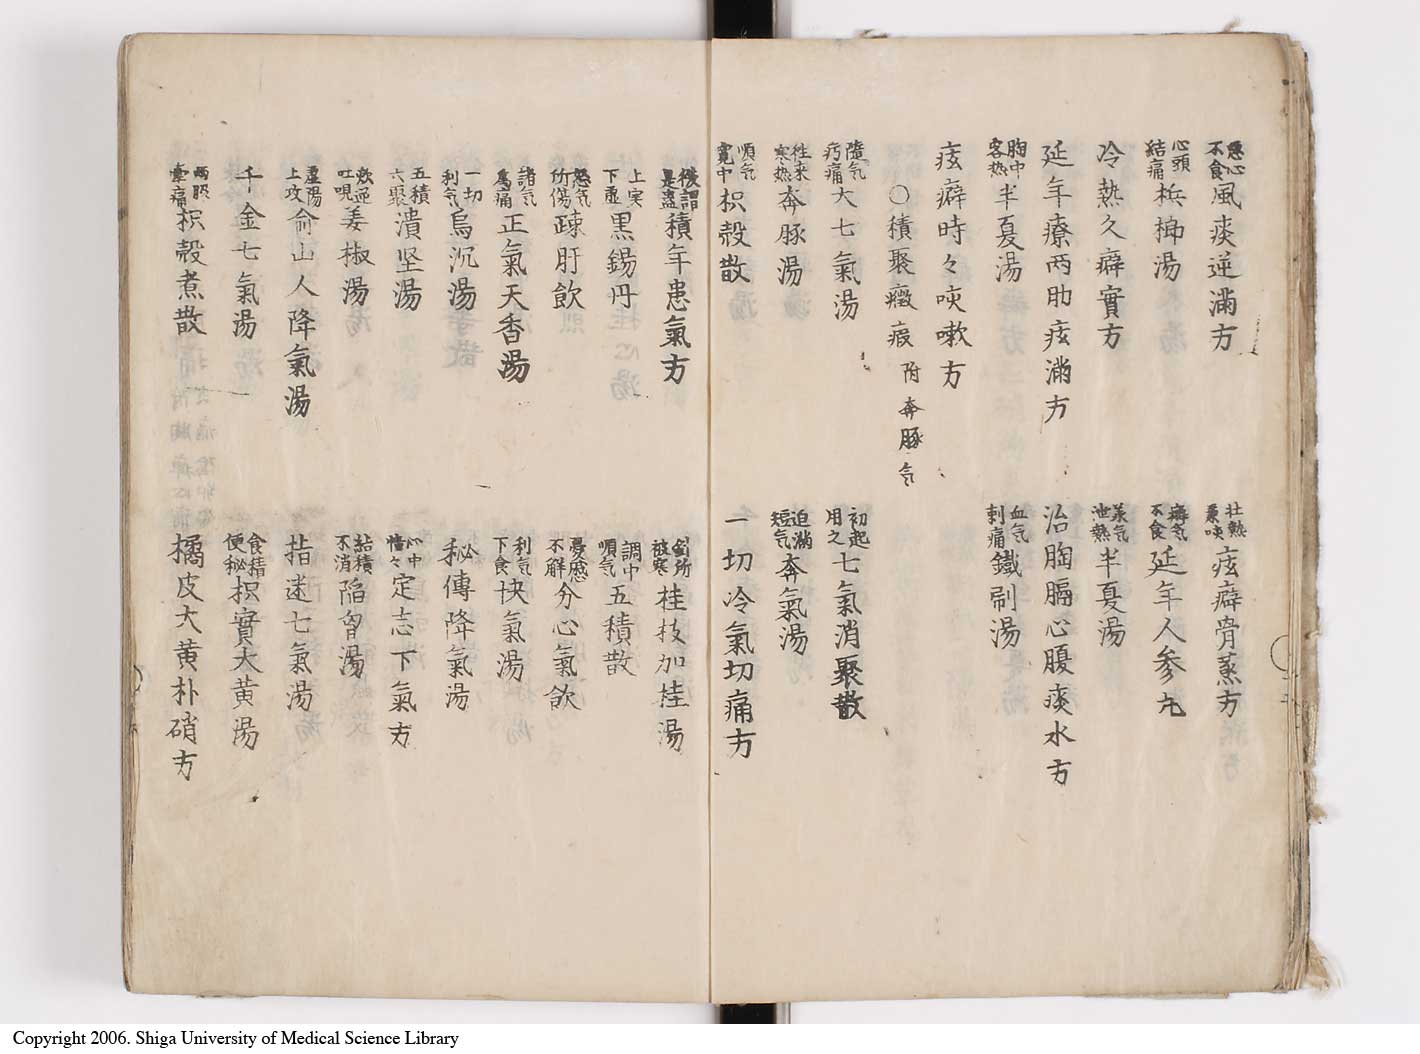 悪心不食 風痰逆満方
壮熱兼咳 痃癖骨蒸方
心頭結痛 梹榔湯
癖気不食 延年人参丸
冷熱久癖實方
羕气泄熱 半夏湯
延年療兩肋痃満方
治胸膈心腹痰水方
胸中客热 半夏湯
血气刺痛 鐵刷湯
痃癖時々咳嗽方
○積聚癥瘕 附奔豚气
隨气疞痛 大七氣湯
初起用之 七氣消聚散
往来寒热 奔豚湯
迫満短气 奔氣湯
順气寛中 枳殻散
一切冷氣切痛方
積年患氣方
被寒 桂枝加桂湯
上实下虚 黒錫丹
調中順气 五積散
怒气所傷 疎肝飲
憂慼不解 分心氣飲
諸气為痛 正氣天香湯
利气下食 快氣湯
一切利气 烏沉湯
秘傳降氣湯
五積六聚 潰坚湯
心中 定志下氣方
吐哯 姜椒湯
結積不消 陷胷湯
虚陽上攻 俞山人降氣湯
指迷七氣湯
千金七氣湯
食積便秘 枳實大黄湯
兩脇痛 枳殻煮散
橘皮大黄朴硝方
Copyright 2006. Shiga University of Medical Science Library